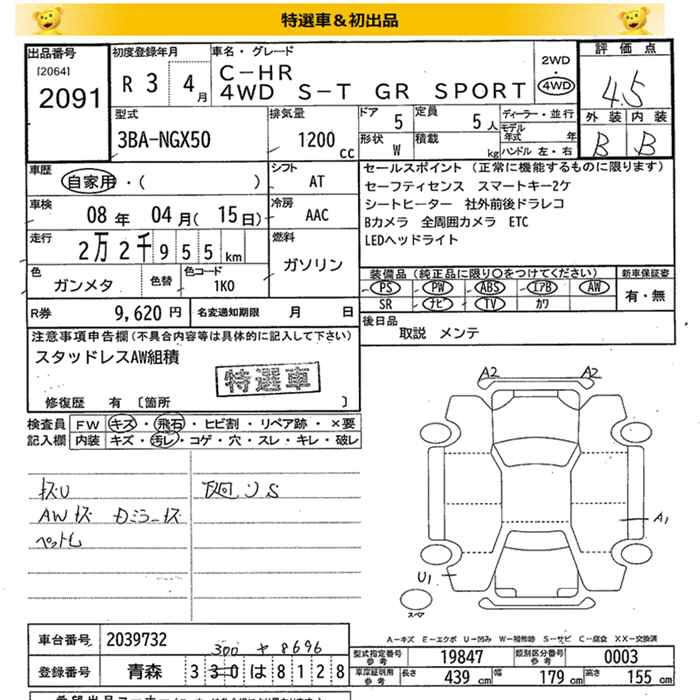 特選車＆初出品
出品番号
[2064]
2091
初度登録年月
R 3 4月
車名・グレード
C-HR
4WD S-T GR SPORT
2WD
4WD
評価点
4.5
外装 内装
B B
型式
3BA-NGX50
排気量
1200 cc
ドア 5
定員 5人
形状 W
積載 kg
ディーラー・並行
モデル年式 年
ハンドル 左・右
車歴
自家用・( )
シフト
AT
車検
08年 04月(15日)
冷房
AAC
走行
2万2千955km
燃料
ガソリン
色
ガンメタ
色替
色コード
1K0
セールスポイント（正常に機能するものに限ります）
セーフティセンス スマートキー2ケ
シートヒーター 社外前後ドラレコ
Bカメラ 全周囲カメラ ETC
LEDヘッドライト
装備品（純正品に限り○をつけてください）
新車保証書
PS PW ABS エアB AW
SR ナビ TV カワ
有・無
R券 9,620円
名変通知期限 月 日
後日品
取説 メンテ
注意事項申告欄(不具合内容等は具体的に記入して下さい)
スタッドレスAW組積
特選車
修復歴 有 [箇所 ]
検査員記入欄
FW キズ・飛石・ヒビ割・リペア跡・×要
内装 キズ・汚レ・コゲ・穴・スレ・キレ・破レ
AWキズ
A2 A2
A1
U1
スペア
A-キズ E-エクボ U-凹み W-補修跡 S-サビ C-腐食 XX-交換済
車台番号 2039732
300 や 8696
登録番号 青森 330は8128
型式指定番号 参考 19847
類別区分番号 参考 0003
車庫証明用 参考 長さ 439 cm 幅 179 cm 高さ 155 cm